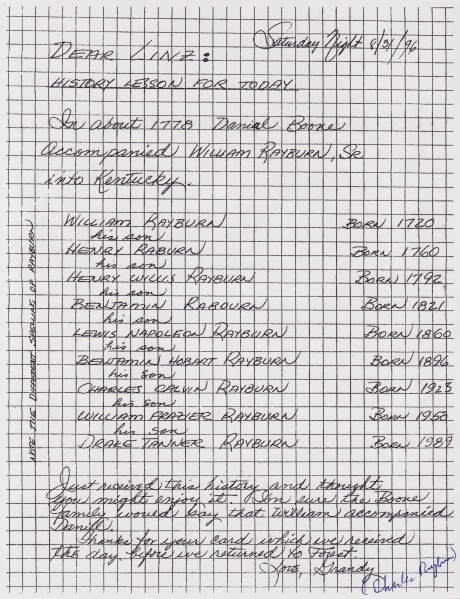 Saturday Night 8/31/96
DEAR LINZ:
HISTORY LESSON FOR TODAY
In about 1778 Danial Boone
accompanied WILLIAM RAYBURN, SR
into Kentucky.
WILLIAM RAYBURN BORN 1720
his son
HENRY RABURN BORN 1760
his son
HENRY WILLIS RAYBURN BORN 1792
his son
BENJAMIN RABOURN BORN 1821
his son
LEWIS NAPOLEON RAYBURN BORN 1860
his son
BENJAMIN HOBART RAYBURN BORN 1896
his son
CHARLES CALVIN RAYBURN BORN 1925
his son
WILLIAM FRAZIER RAYBURN BORN 1950
his son
DRAKE TANNER RAYBURN BORN 1989
NOTE THE DIFFERENT SPELLING OF RAYBURN
Just received this history and thought
you might enjoy it. I'm sure the Boone
family would say that William accompanied
Daniel.
Thanks for your card which we received
the day before we returned to Forest.
Love, Grandy
(Charles Rayburn)